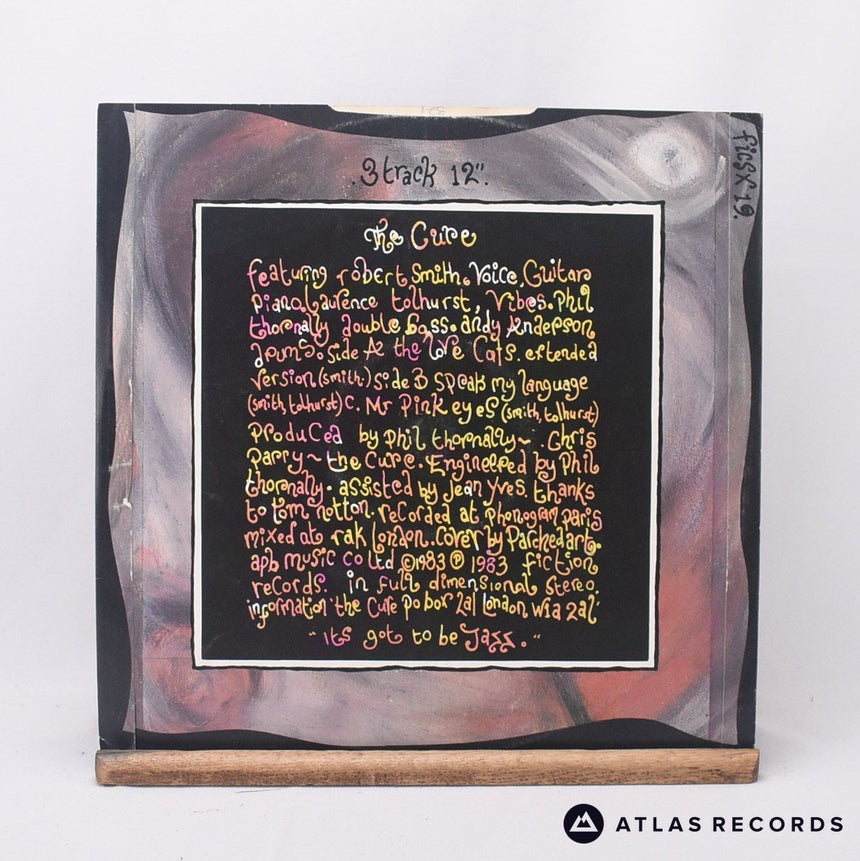 .3 track 12".
ficsx 19.
The Cure
featuring robert Smith. Voice, Guitar
piano. Laurence tolhurst, Vibes. Phil
thornally double bass. andy Anderson
drums. Side A2 the love Cats. extended
version (smith.) Side B Speak my language
(smith, tolhurst) C. Mr Pink eyes (smith, tolhurst)
Produced by phil thornally~ . Chris
Parry ~ the Cure. Engineered by Phil
thornally. assisted by Jean Yves. thanks
to tom notton. recorded at phonogram paris
mixed at rak london. cover by Parchedart.
apb music co ltd ©1983 ℗ 1983 fiction
records. in full dimensional stereo.
information 'the Cure po box 2al london w1a 2al'
"its got to be Jazz."
ATLAS RECORDS